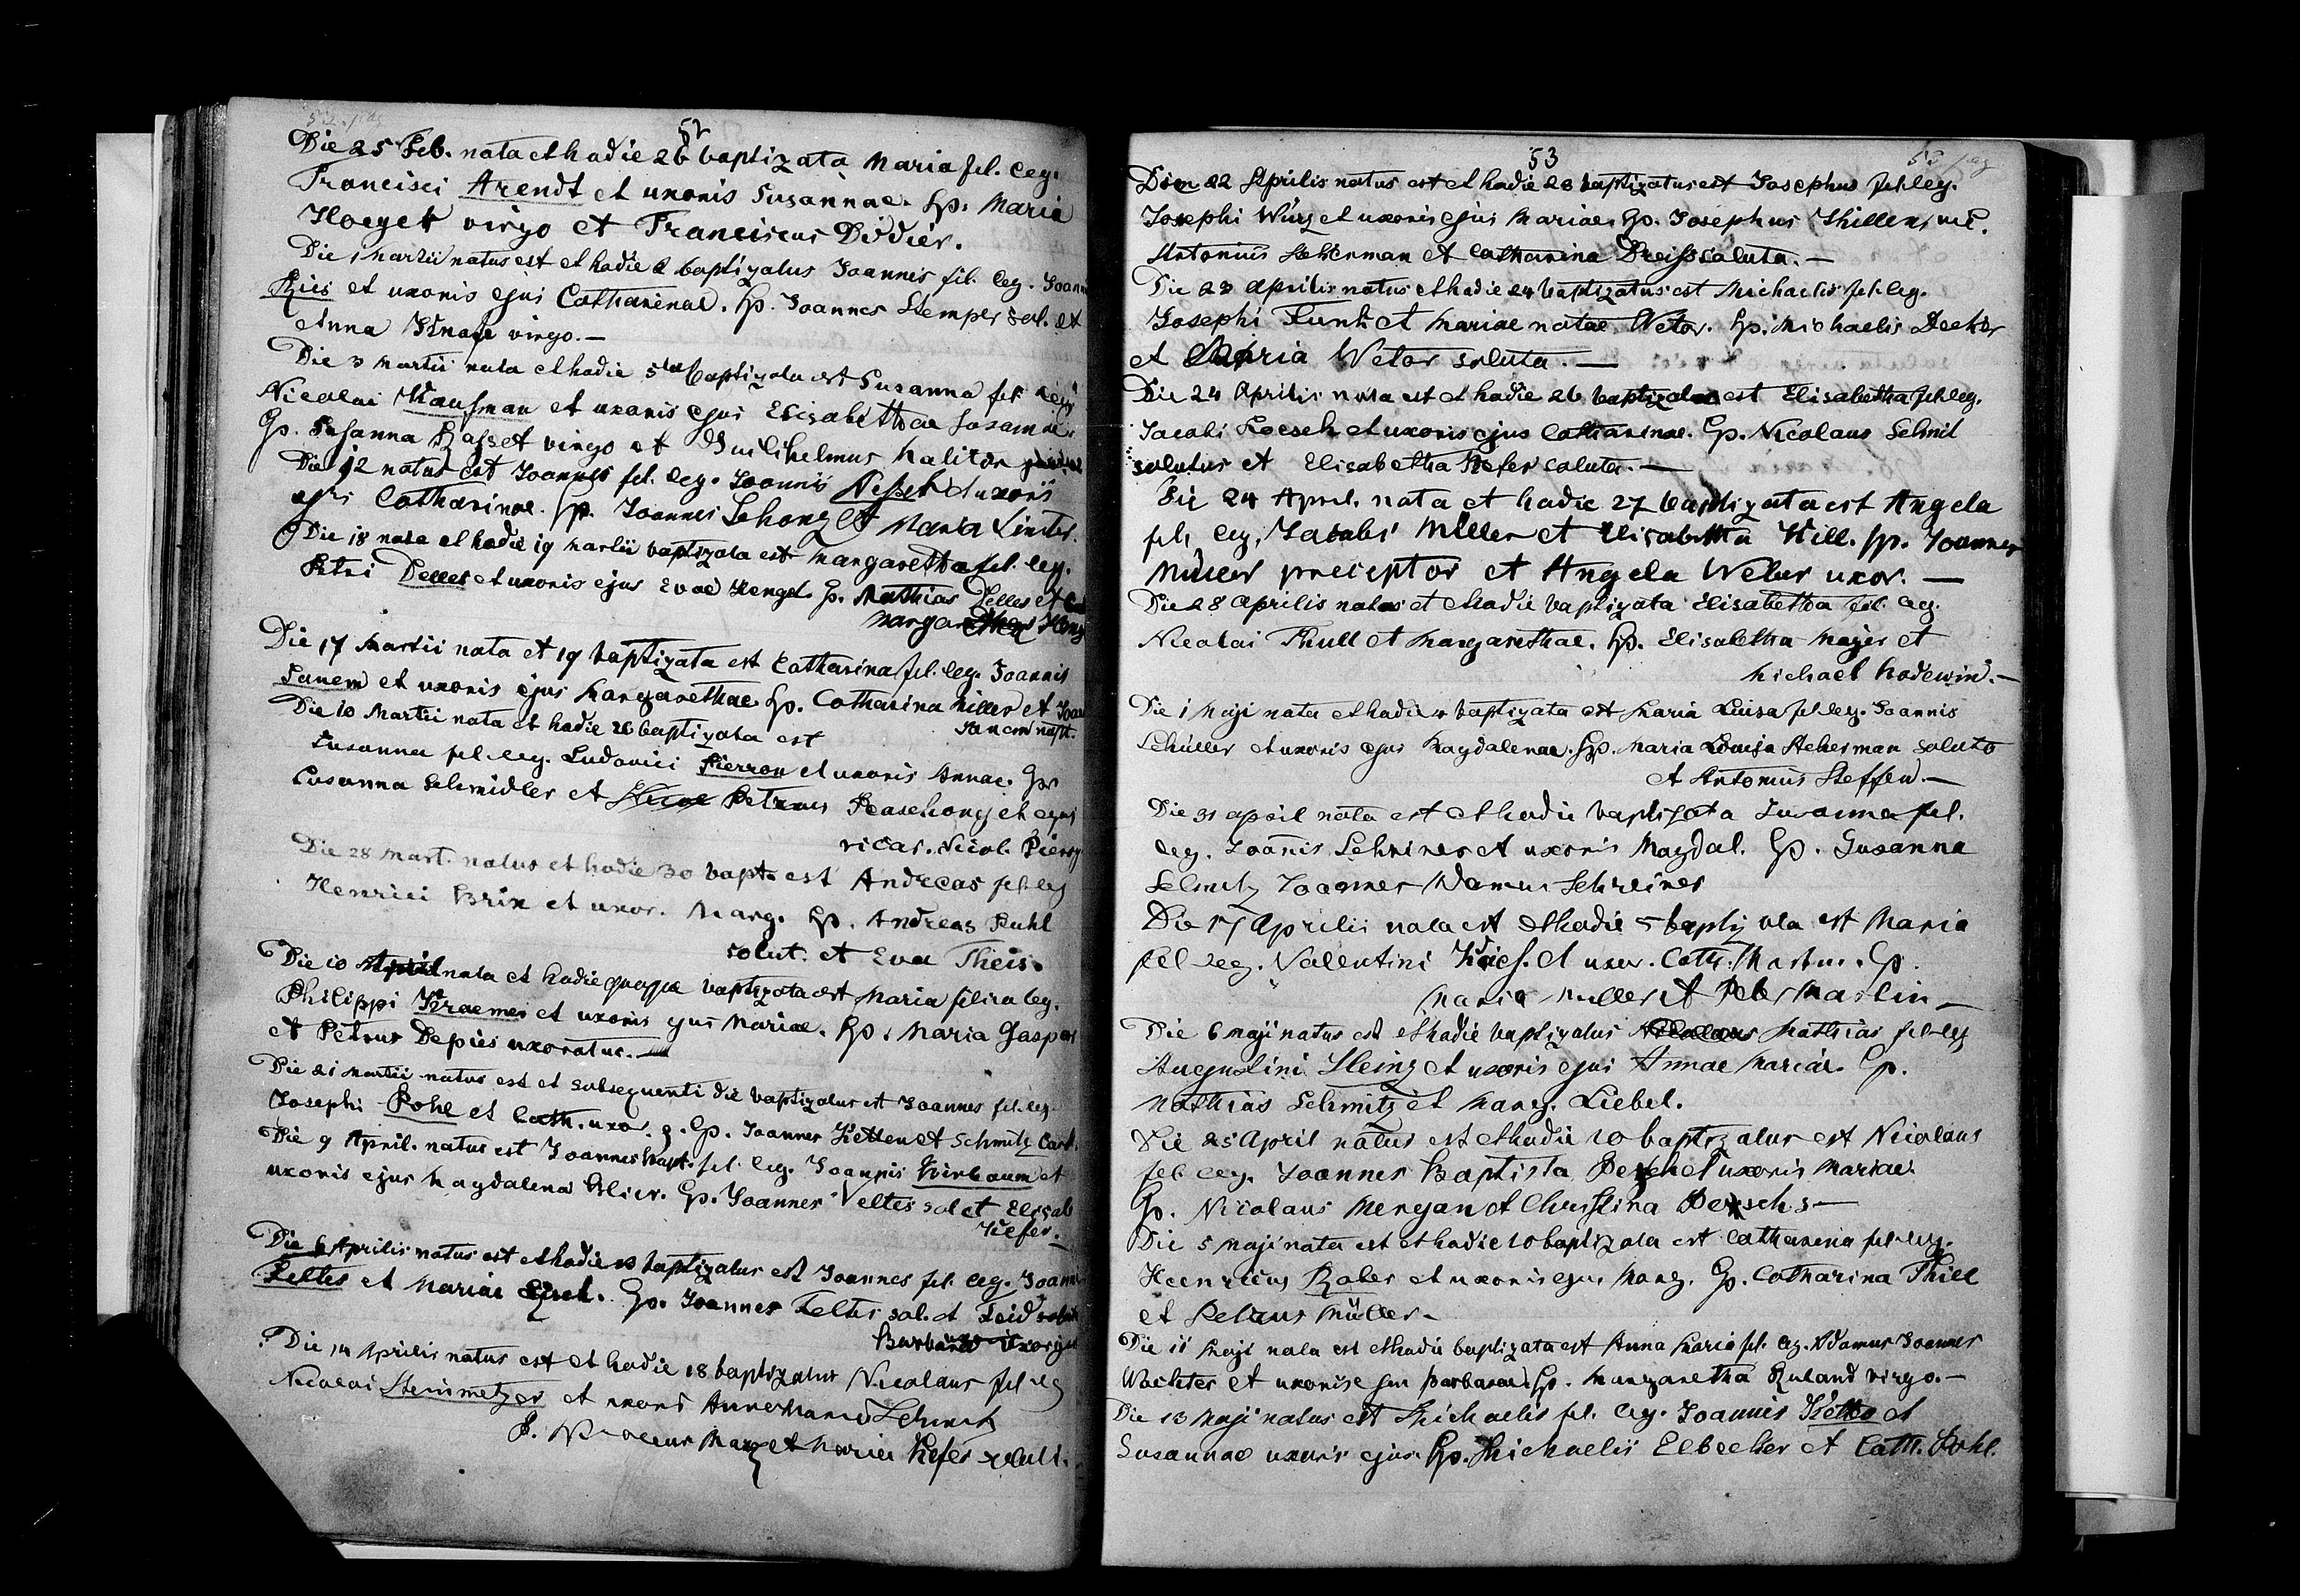 52
Die 25 Feb. nata et hodie 26 baptizata Maria fil. leg.
Francisci Arendt et uxoris Susannae. Gp. Maria
virgo et Franciscus Didier.
Die 1 Martii natus est et hodie 2 baptizatus Joannes fil. leg. Joann
Ries et uxoris ejus Catharinae. Gp. Joannes Stemper sol. et
Anna virgo.—
Die 3 Martii nata et hodie 5ta baptizata est Susanna fil. leg.
Nicolai Kaufman et uxoris ejus Elisabethae
Gp. Susanna virgo et Guilihelmus Halitor
Die 12 natus est Joannes fil. leg. Joannis et uxoris
ejus Catharinae. Gp. Joannes Schonz et Maria Linster.
Die 18 nata et hodie 19 Martii baptizata est Margaretha fil. leg.
Petri Delles et uxoris ejus Evae Hengel. Gp. Mathias Delles et
Die 17 Martii nata et 19 baptizata est Catharina fil. leg. Joannis
Sanem et uxoris ejus Margarethae. Gp. Catharina Miller et Joan
Sanem nupt.
Die 10 Martii nata et hodie 26 baptizata est
Susanna fil. leg. Ludovici Pierron et uxoris Annae. Gp.
Susanna Schmidler et Petrus et ejus
vicar. Nicol. Pierro
Die 28 Mart. natus et hodie 30 bapt. est Andreas fil. leg
Henrici Brix et uxor. Marg. Gp. Andreas Ruhl
solut. et Eva Theis.
Die 10 nata et hodie quoque baptizata est Maria filia leg.
Philippi Kraemer et uxoris ejus Mariae. Gp. Maria Gaspar
et Petrus Depies uxoratus.—
Die 21 Martii natus est et subsequenti die baptizatus est Joannes fil. leg.
Josephi Pohl et Cath. uxor. Gp. Joannes Ketten et Schmitz Cath.
Die 9 April. natus est Joannes Bapt. fil. leg. Joannis Birbaum et
uxoris ejus Magdalena Blier. Gp. Joannes Veltes sol et Elisab
Kiefer.—
Die 6 Aprilis natus est et hodie baptizatus est Joannes fil. leg. Joann
Feltes et Mariae Gp. Joannes Feltes sol. et
Barbara
Die 14 Aprilis natus est et hodie 18 baptizatus Nicolaus fil leg
Nicolai Steinmetzer et uxoris Anne Maria Schmit
et Maria Kefer
53
Die 22 Aprilis natus est et hodie 23 baptizatus est Josephus fil. leg.
Josephi Würz et uxoris ejus Mariae. Gp. Josephus Thillen,
Antonius Ackerman et Catharina Dreiss soluta.—
Die 23 Aprilis natus et hodie 24 baptizatus est Michaelis fil. leg.
Josephi Funk et Mariae natae Wetor. Gp. Michaelis Decker
et Maria Wetor soluta.—
Die 24 Aprilis nata est et hodie 26 baptizata est Elisabetha fil. leg.
Jacobi Loesch et uxoris ejus Catharinae. Gp. Nicolaus Schmit
solutus et Elisabetha Kefer soluta.—
Die 24 April. nata et hodie 27 baptizata est Angela
fil. leg. Jacobi Müller et Elisabetha Hill. Gp. Joannes
Müller preceptor et Angela Weber uxor.—
Die 28 Aprilis natus et hodie baptizata Elisabetha fil. leg.
Nicolai Thull et Margarethae. Gp. Elisabetha Majer et
Michael Hodewin.—
Die 1 Maji nata et hodie 4 baptizata est Maria Luisa fil. leg. Joannis
Schüller et uxoris ejus Magdalenae. Gp. Maria Louisa Ackerman soluta
et Antonius Steffen.—
Die 31 april nata est et hodie baptizata Susanna fil.
leg. Joannis Schriner et uxoris Magdal. Gp. Susanna
Schmitz Joannes Schreiner
Die 17 Aprilii nata est et hodie 5 baptizata est Maria
fil leg. Valentini et uxor. Cath. Martin. Gp.
Maria Muller et Peter Martin—
Die 6 Maji natus est et hodie baptizatus Mathias fil. leg
Augustini Heinz et uxoris ejus Annae Mariae. Gp.
Mathias Schmitz et Marg. Liebel.
Die 25 April natus est et hodie 10 baptizatus est Nicolaus
fil. leg. Joannes Baptista et uxoris Mariae.
Gp. Nicolaus Mergan et Christina
Die 5 Maji nata est et hodie 10 baptizata est Catharina fil. leg.
Heenricus Rober et uxoris ejus Marg. Gp. Catharina Thill
et Petrus Müller.
Die 11 Maji nata est et hodie baptizata est Anna Maria fil. leg. Adamus Joannes
Wachter et uxoris ejus Barbarae. Gp. Margaretha Ruland virgo.—
Die 13 Maji natus est Michaelis fil. leg. Joannis et
Susannae uxoris ejus. Gp. Michaelis Elbecker et Cath. Pohl.